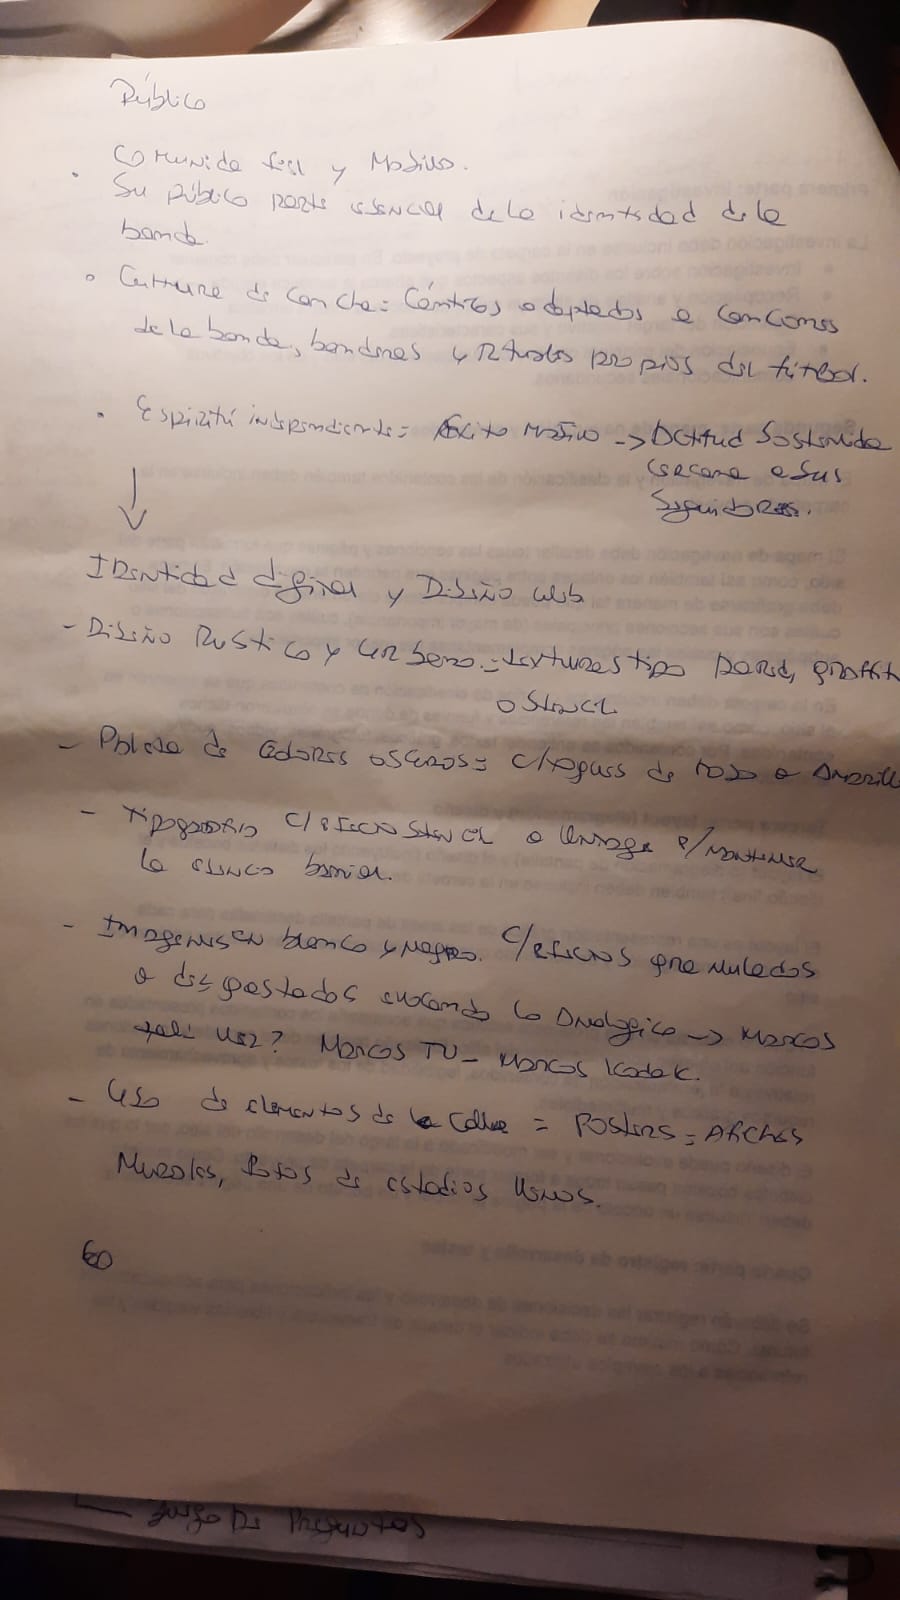 Público
Comunidad fiel y Masiva.
Su público parte esencial de la identidad de la
banda.
Cultura de cancha = Cánticos adaptados a canciones
de la banda, banderas y rituales propios del fútbol.
Espíritu independiente = Éxito Masivo -> Actitud Sostenida
cercana a sus
Seguidores.
Identidad digital y Diseño web
- Diseño Rustico y urbano = texturas tipo pared, graffiti
o Stencil
- Paleta de Colores oscuros = c/toques de rojo o Amarillo
- Tipografia c/efecto Stencil o Vintage p/mantener
la barrial.
- Imagenes en blanco y negro. c/efectos granulados
o desgastados evocando lo Analogico -> Marcos
Marcos TV - Marcos Kodak.
- Uso de elementos de la Calle = Posters = Afiches
Murales, fotos de estadios llenos.
60
Juego De Preguntas